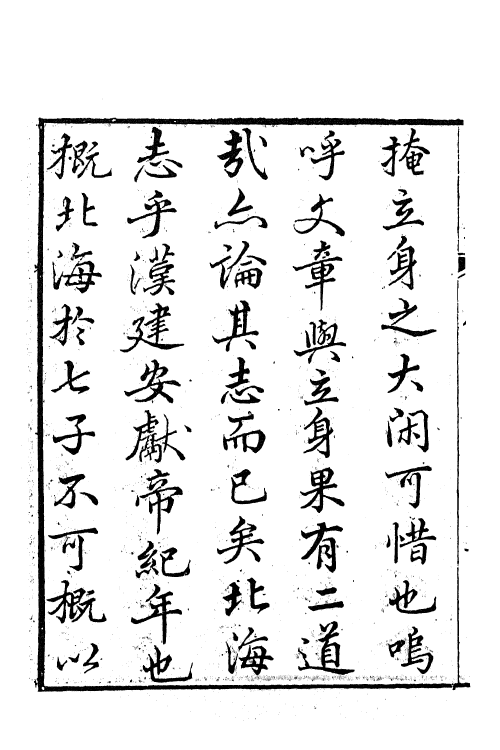 掩立身之大闲可惜也嗚
呼文章與立身果有二道
哉亦論其志而已矣北海
志乎漢建安獻帝紀年也
概北海於七子不可概以